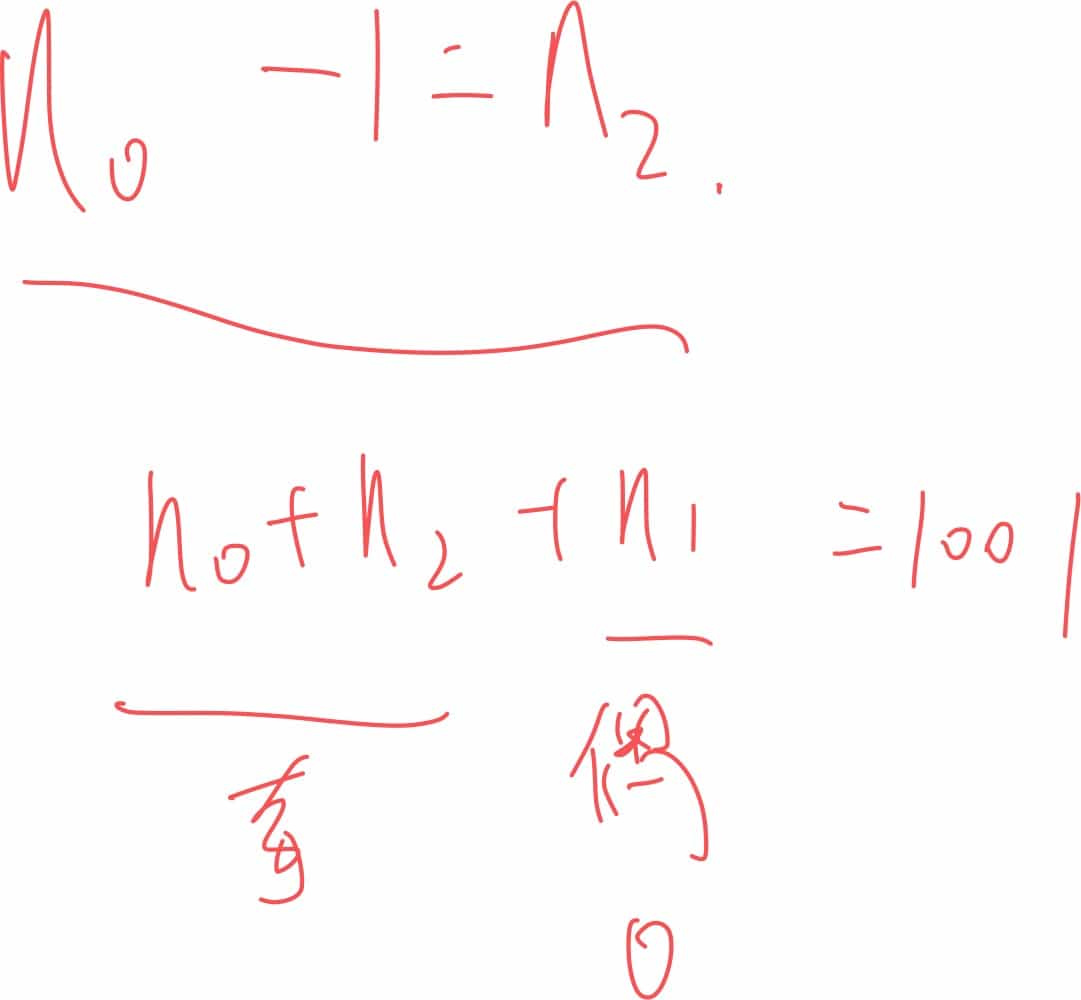 n₀ -1 = n₂.
n₀ + n₂ + n₁ = 1001
奇 偶
0